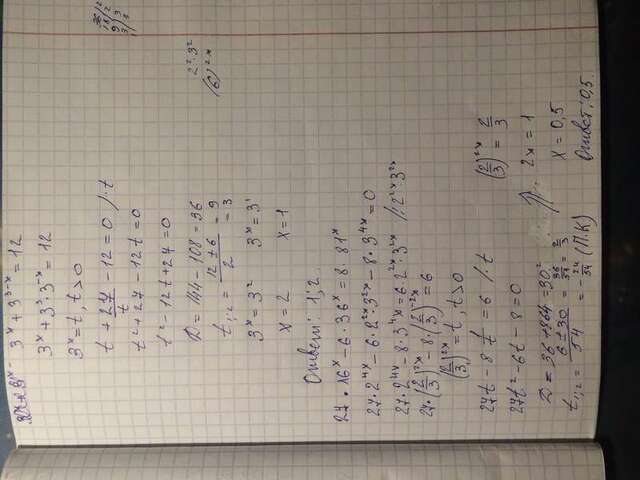 3^x + 3^{3-x} = 12
3^x + 3^3 · 3^{-x} = 12
3^x = t, t > 0
t + 27/t - 12 = 0 / · t
t^2 + 27 - 12t = 0
t^2 - 12t + 27 = 0
D = 144 - 108 = 36
t_{1;2} = (12 ± 6)/2 = 9
= 3
3^x = 3^2 3^x = 3^1
x = 2 x = 1
Ответ: 1; 2.
36 | 2
18 | 2
9 | 3
3 | 3
1
2^2 · 3^2
(6)^{2x}
27 · 16^x - 6 · 36^x = 8 · 81^x
27 · 2^{4x} - 6 · 2^{2x} · 3^{2x} - 8 · 3^{4x} = 0
27 · 2^{4x} - 8 · 3^{4x} = 6 · 2^{2x} · 3^{2x} / : 2^{2x} · 3^{2x}
27 · (2/3)^{2x} - 8 · (2/3)^{-2x} = 6
(2/3)^{2x} = t, t > 0
27t - 8 1/t = 6 / · t
27t^2 - 6t - 8 = 0
D = 36 + 864 = 30^2
t_{1;2} = (6 ± 30)/54 = 36/54 = 2/3
= -24/54 (П.К)
(2/3)^{2x} = 2/3
2x = 1
x = 0,5
Ответ: 0,5.